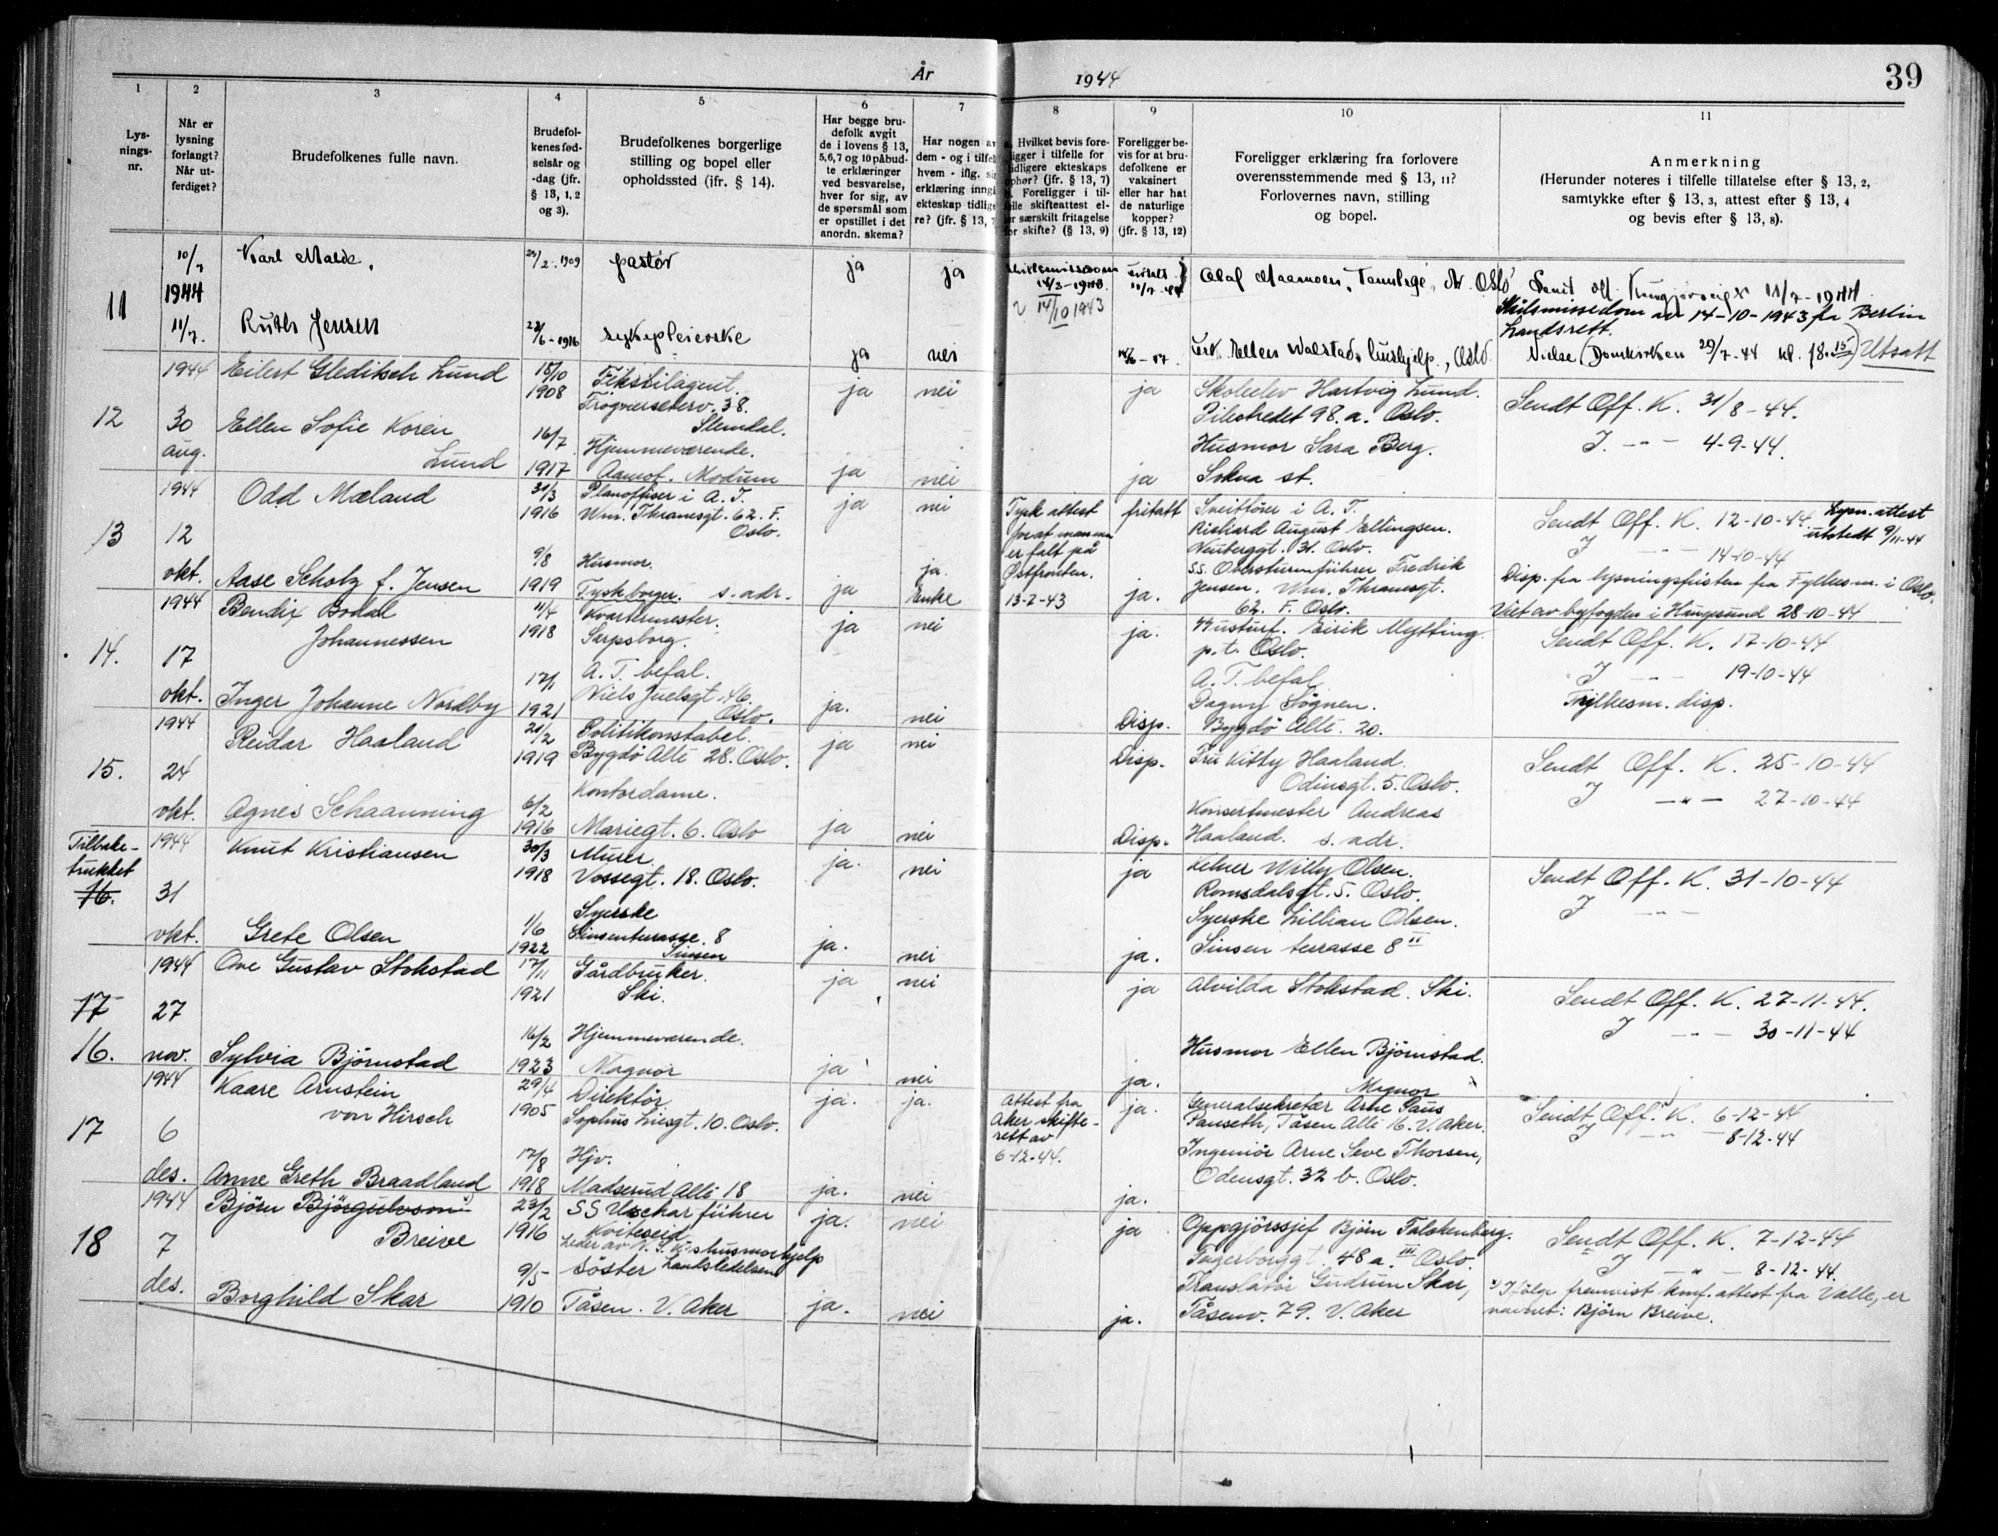 År 1944
39
1 2 3 4 5 6 7 8 9 10 11
Lys-
nings-
nr.
Når er
lysning
forlangt?
Når ut-
ferdiget?
Brudefolkenes fulle navn.
Brudefol-
kenes fød-
selsår og
-dag (jfr.
§ 13, 1, 2
og 3).
Brudefolkenes borgerlige
stilling og bopel eller
opholdssted (ifr. § 14).
Har begge bru-
defolk avgit
de i lovens § 13,
5,6,7 og 10 påbud-
te erklæringer
ved besvarelse,
hver for sig, av
de spørsmål som
er opstillet i det
anordn. skema?
Har nogen av
dem - og i tilfel
hvem - iflg. si
erklæring inngi
ekteskap tidlig
re? (jfr. § 13, 7
Hvilket bevis fore-
ligger i tilfelle for
tidligere ekteskaps
ophør? (jfr. § 13, 7)
Foreligger i til-
felle skifteattest el-
ler særskilt fritagelse
for skifte? (§ 13, 9)
Foreligger be-
vis for at bru-
defolkene er
vaksinert
eller har hat
de naturlige
kopper?
(jfr. § 13, 12)
Foreligger erklæring fra forlovere
overensstemmende med § 13, 11?
Forlovernes navn, stilling
og bopel.
Anmerkning
(Herunder noteres i tilfelle tillatelse efter § 13, 2,
samtykke efter § 13, 3, attest efter § 13, 4
og bevis efter § 13, 8).
11
10/7
1944
11/7.
Karl Malde.
2-1909
pastor
ja
ja
14/3-1943
14/10 1943
11/7-44
Olaf Aamoen, Tannlege, Oslo
Sendt off. Kungjøring 11/7-1944
Skilsmissedom av 14-10-1943 fra Berlin
Landsrett.
Ruth Jensen
6-1916
sykepleierske
ja
nei
Ellen Walstad, hushjelp, Oslo.
Vielse (Domkirken 29/7-44 kl. 18.15) Utsatt
12
1944
30
aug.
Eilert Gleditsch Lund
15/10
1908
Tekstilagent.
38.
Slemdal.
ja
nei
ja
Skoleelev Hartvig Lund.
Pilestredet 98.a. Oslo.
Sendt Off. K. 31/8-44.
Ellen Sofie Koren
Lund
16/7
1917
Hjemmeværende.
Aamot. Modum
ja
nei
ja
Husmor Sara Berg.
Sokna st.
J. -"- 4-9-44.
13
1944
12
okt.
Odd Mæland
31/3
1916
Planoffiser i A.T.
Wm. Thranesgt. 62. F.
Oslo.
ja
nei
Tysk attest
for at mannen
er falt på
Østfronten.
13-2-43
fritatt
Sveitfører i A.T.
Rickard August Ellingsen.
Neuberggt. 31. Oslo.
Sendt Off. K. 12-10-44.
J -"- 14-10-44
Lysn. attest
utstedt 9/11-44
Aase Scholz f. Jensen
9/8
1919
Husmor.
Tysk borger. s. adr.
ja
ja.
Enke
ja.
SS. Obersturmführer Fredrik
Jensen. Wm. Thranesgt.
62. F. Oslo.
Disp. fra lysningsfristen fra Fylkesm. i Oslo.
Viet av byfogden i Haugesund 28-10-44
14.
1944
17
okt.
Bendix Bodal
Johannessen
11/4
1918
Kvartermester.
Sarpsborg.
ja
nei
ja.
Eirik Mytting.
p.t. Oslo.
Sendt Off. K. 17-10-44
J -"- 19-10-44
Inger Johanne Nordby
17/1
1921
A.T. befal.
Niels Juelsgt. 46.
Oslo.
ja.
nei
Disp.
A.T. befal
Dagny Søgnen.
Bygdø Allé. 20.
Fylkesm. disp.
15.
1944
24
okt.
Reidar Haaland
21/2
1919
Politikonstabel.
Bygdø Allé 28. Oslo.
ja
nei
Disp.
Fru Kitty Haaland.
Odinsgt. 5. Oslo.
Sendt Off. K. 25-10-44
J -"- 27-10-44
Agnes Schaanning
6/2
1916
Kontordame.
Mariegt. 6. Oslo
ja
nei
Disp.
Konsertmester Andreas
Haaland. s. adr.
Tilbake-
trukket
16.
1944
31
okt.
Knut Kristiansen
30/3
1918
Murer.
Vossegt. 18. Oslo.
ja.
nei
ja
Kelner Willy Olsen.
Romsdalsgt. 5. Oslo.
Sendt Off. K. 31-10-44
J -"-
Grete Olsen
1/6
1922
Syerske
Sinsenterrasse. 8
Sinsen
ja.
nei
ja.
Syerske Lillian Olsen.
Sinsen terrasse 8 II
17
16.
1944
27
nov.
Ove Gustav Stokstad
17/11
1921
Gårdbruker.
Ski.
ja
nei
ja
Alvilda Stokstad. Ski.
Sendt Off. K. 27-11-44.
J -"- 30-11-44
Sylvia Bjørnstad
16/2
1923
Hjemmeværende.
Magnor
ja
nei
ja.
Husmor Ellen Bjørnstad.
Magnor
17
1944
6
des.
Kaare Arnstein
von Hirsch
29/4
1905
Direktør
Sophus Liesgt. 10. Oslo.
ja.
ja.
Attest fra
Aker skifte-
rett av
6-12-44.
ja.
Generalsekretær Arne Paus
Pauseth, Tåsen Allé 16. V. Aker.
Sendt Off. K. 6-12-44
J -"- 8-12-44
Anne Greth Braadland
17/8
1918
Hjv.
Madserud Allé 18
ja.
nei
ja.
Ingeniør Arne Seve Thorsen,
Odensgt. 32 b. Oslo.
18
1944
7
des.
Bjørn Bjørgulvson
Breive
23/2
1916
SS Uscharführer
Kviteseid
ja.
nei
ja
Oppgjørssjef Bjørn Falckenberg.
Fagerborggt. 48 a. III Oslo.
Sendt Off. K. 7-12-44
J -"- 8-12-44.
Borghild Skar
9/5
1910
Leder av N.S.K's husmorhjelp
søster Landsledelsen
Tåsen. V. Aker
ja.
nei
ja.
Translatør Gudrun Skar,
Tåsenv. 79. V. Aker
x) Ifølge fremvist konf. attest fra Valle, er
navnet: Bjørn Breive.